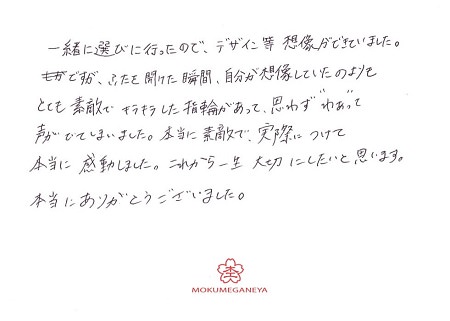 一緒に選びに行ったので、デザイン等 想像ができていました。
ですが、ふたを開けた瞬間、自分が想像していたのよりも
とても 素敵で キラキラした指輪があって、思わず"わぁ"って
声がでてしまいました。本当に素敵で、実際につけて
本当に 感動しました。これから一生 大切にしたいと思います。
本当にありがとうございました。
MOKUMEGANEYA